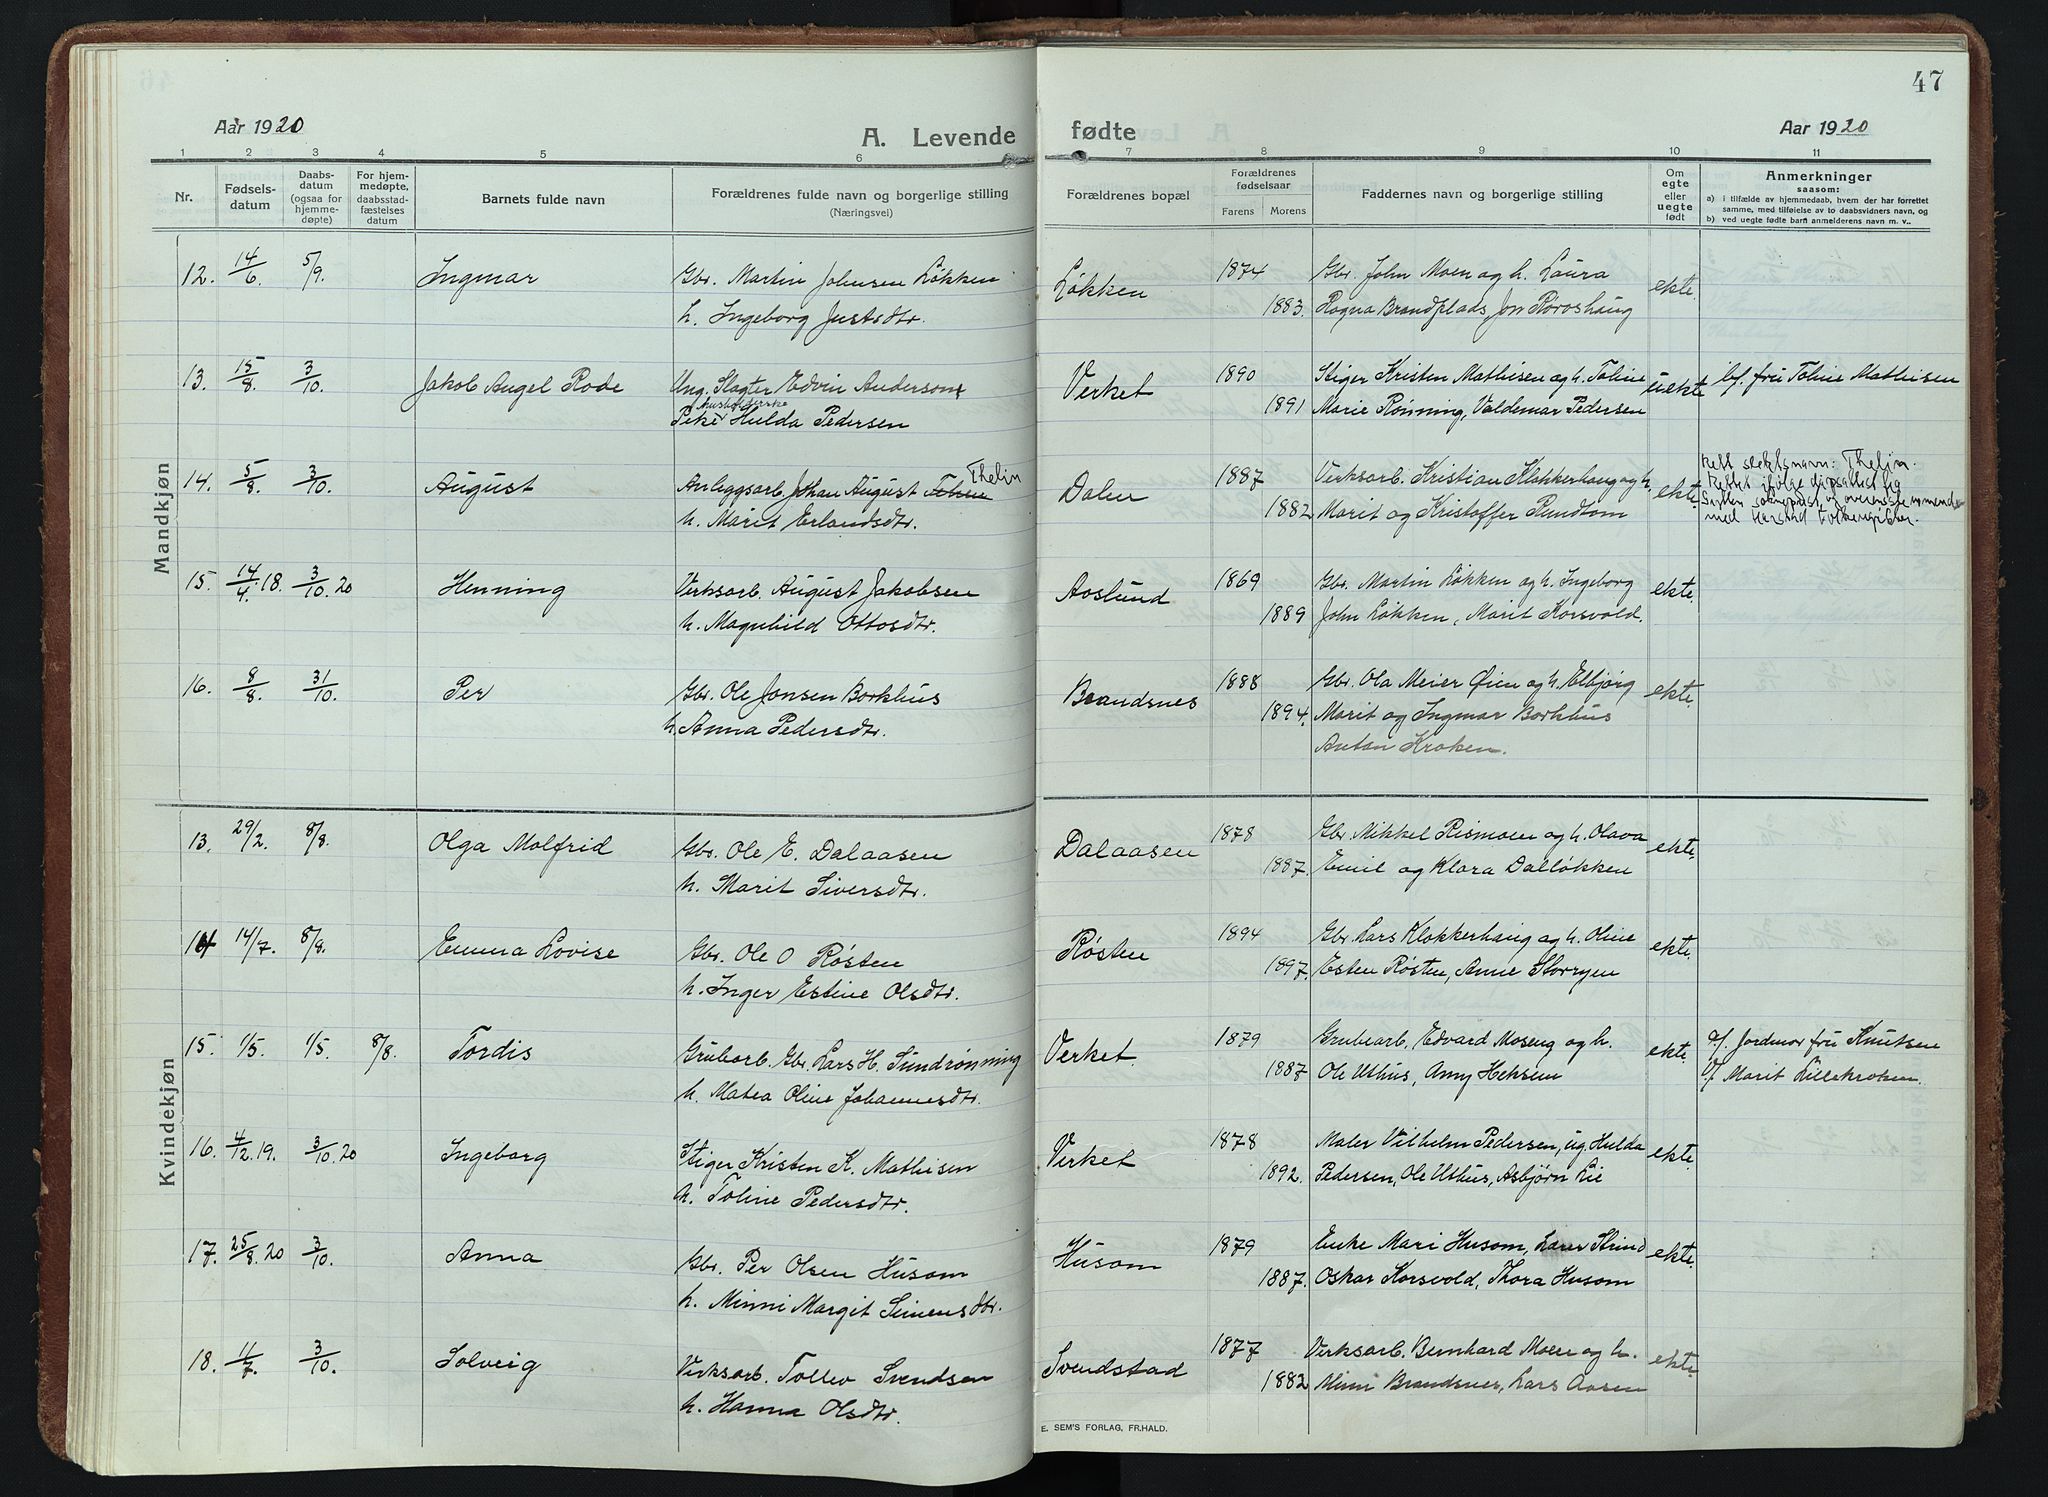 47
Aar 1920
A. Levende fødte
Aar 1920
1 2 3 4 5 6 7 8 9 10 11
Nr. Fødselsdatum Daabsdatum (ogsaa for hjemmedøpte) For hjemmedøpte, daabsstadfæstelses datum Barnets fulde navn Forældrenes fulde navn og borgerlige stilling (Næringsvei) Forældrenes bopæl Forældrenes fødselsaar Farens Morens Faddernes navn og borgerlige stilling Om egte eller uegte født Anmerkninger saasom:
a) i tilfælde av hjemmedaab, hvem der har forrettet samme, med tilføielse av to daabsvidners navn, og
b) ved uegte fødte barn anmelderens navn m. v..
Mandkjøn
12. 14/6 5/9. Ingmar Gbr. Martin Johnsen Løkken Løkken 1874 Gbr. John Moen og h. Laura ekte.
h. Ingeborg Justsdtr. 1883. Ragna Brandplads, Jon Røroshaug
13. 15/8. 3/10. Jakob Angel Rode Ung. Slagter Edvin Anderson Verket 1890 Stiger Kristen Mathisen og h. Toline uekte b/. fru Toline Mathisen
husholderske
Pike Hulda Pedersen 1891 Marie Rønning, Valdemar Pedersen
14. 5/8. 3/10. August Anleggsarb. Johan August Thelin Dalen 1887 Verksarb. Kristian Klokkerhaug og h. ekte. Rett slektsnavn: Thelin.
h. Marit Erlandsdtr. 1882 Marit og Kristoffer Rundtom
Rettet ifølge
med Harstad folkeregister.
15. 14/4. 18. 3/10. 20 Henning Verksarb. August Jakobsen Aaslund 1869 Gbr. Martin Løkken og h. Ingeborg ekte.
h. Magnhild Ottosdtr. 1889 John Løkken, Marit Korsvold.
16. 8/8. 31/10. Per Gbr. Ole Jonsen Borkhus Brandsnes 1888 Gbr. Ola Meier Øien og h. Elbjørg ekte.
h. Anna Pedersdtr. 1894. Marit og Ingmar Borkhus
Anton Kroken.
Kvindekjøn
13. 29/2. 8/8. Olga Malfrid Gbr. Ole E. Dalaasen Dalaasen 1878 Gbr. Mikkel Rismoen og h. Olava ekte.
h. Marit Siversdtr. 1887. Emil og Klara Dalløkken
14 14/7. 8/8. Emma Lovise Gbr. Ole O Røsten Røsten 1894 Gbr. Lars Klokkerhaug og h. Oline ekte.
h. Inger Estine Olsdtr. 1897. Esten Røsten, Anne Storryen
15. 1/5. 1/5. 8/8. Tordis Grubarb. Gbr. Lars H. Sundrønning Verket 1879 Grubearb. Edvard Moseng og h. ekte. a/. Jordmor fru Knutsen
h. Matea Oline Johannesdtr. 1887 Ole Uthus, Amy Heksem b/. Marit Lillekroken.
16. 4/12. 19. 3/10. 20 Ingeborg Stiger Kristen K. Mathisen Verket 1878 Maler Vilhelm Pedersen, ug. Hulda ekte.
h. Toline Pedersdtr. 1892. Pedersen, Ole Uthus, Asbjørn Lie
17. 25/8. 20 3/10. Anna Gbr. Per Olsen Husom Husom 1879 Enke Mari Husom, Lars Strind ekte.
h. Minni Margit Simensdtr. 1887. Oskar Korsvold, Thora Husom
18. 11/7. 3/10. Solveig Verksarb. Tollev Svendsen Svendstad 1877 Verksarb. Bernhard Moen og h. ekte.
h. Hanna Olsdtr. 1882 Minni Brandsnes, Lars Aasen
E. SEM'S FORLAG, FR.HALD.